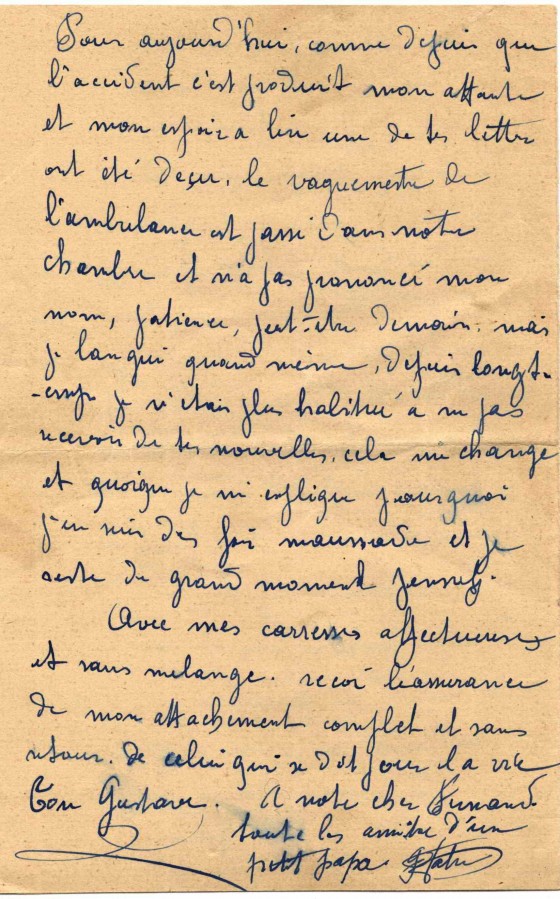 Pour aujourd'hui, comme depuis que
l'accident c'est produit mon attente
et mon espoir a lire une de tes lettre
ont été deçu. le vaguemestre de
l'ambulance est passé dans notre
chambre et n'a pas prononcé mon
nom, patience, peut-être demain. mais
je langui quand même, depuis longt-
-emps je n'étais plus habitué a ne pas
recevoir de tes nouvelles, cela me change
et quoique je m'explique pourquoi
j'en suis des foi maussade et je
reste de grand moment pensif.
Avec mes carresses affectueuses
et sans mélange. reçoi l'assurance
de mon attachement complet et sans
retour. de celui qui se doit pour la vie
Ton Gustave. A notre cher Fernand.
toute les amitié d'un
petit papa